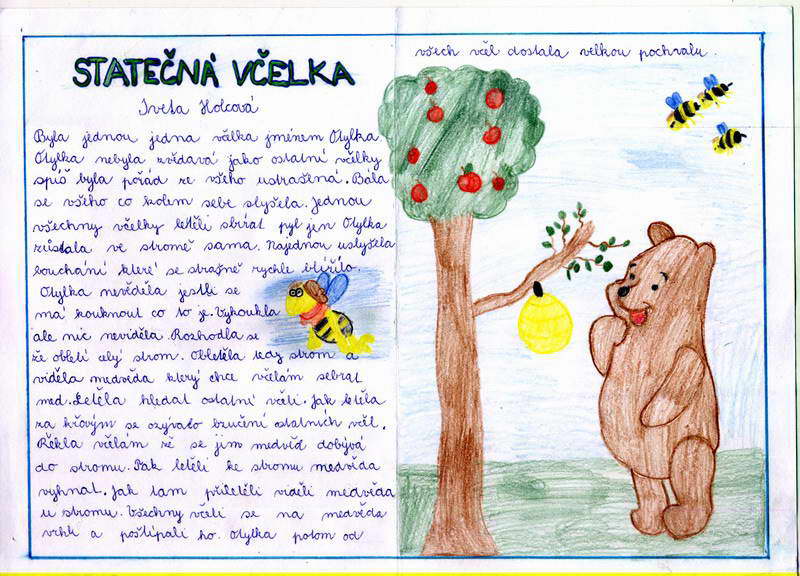 STATEČNÁ VČELKA
Iveta Holcová
Byla jednou jedna včelka jménem Otylka.
Otylka nebyla zvědavá jako ostatní včelky
spíš byla pořád ze všeho ustrašená. Bála
se všeho co kolem sebe slyšela. Jednou
všechny včelky letěli sbírat pyl jen Otylka
zůstala ve stromě sama. Najednou uslyšela
bouchání které se strašně rychle blížilo.
Otylka nevěděla jestli se
má kouknout co to je. Vykoukla
ale nic neviděla. Rozhodla se
že obletí celý strom. Obletěla tedy strom a
viděla medvěda který chce včelám sebrat
med. Letěla hledat ostatní včeli. Jak letěla
za křovým se ozývalo bzučení ostatních včel.
Řěkla včelám že se jim medvěd dobývá
do stromu. Pak letěli ke stromu medvěda
vyhnat. Jak tam přiletěli viděli medvěda
u stromu. Všechny včeli se na medvěda
vrhli a poštípali ho. Otylka potom od
všech včel dostala velkou pochvalu.